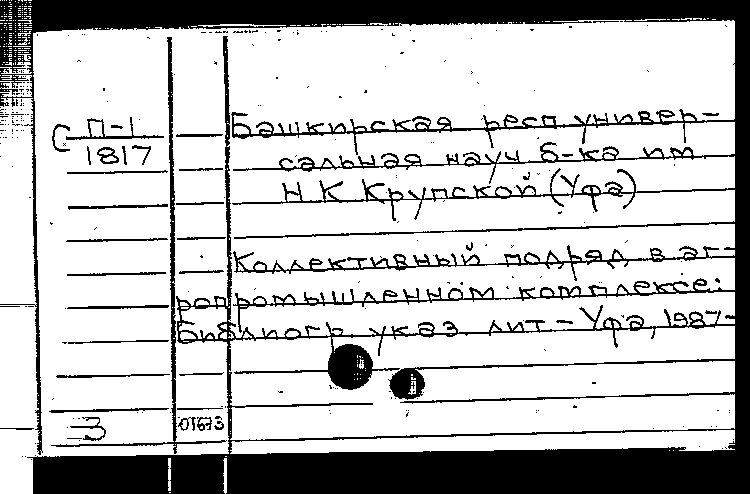 С П-1 Башкирская респ. универ-
1817 сальная науч. б-ка им.
Н. К. Крупской (Уфа)
Коллективный подряд в аг-
ропромышленном комплексе:
Библиогр. указ. лит. - Уфа, 1987-
3 01673